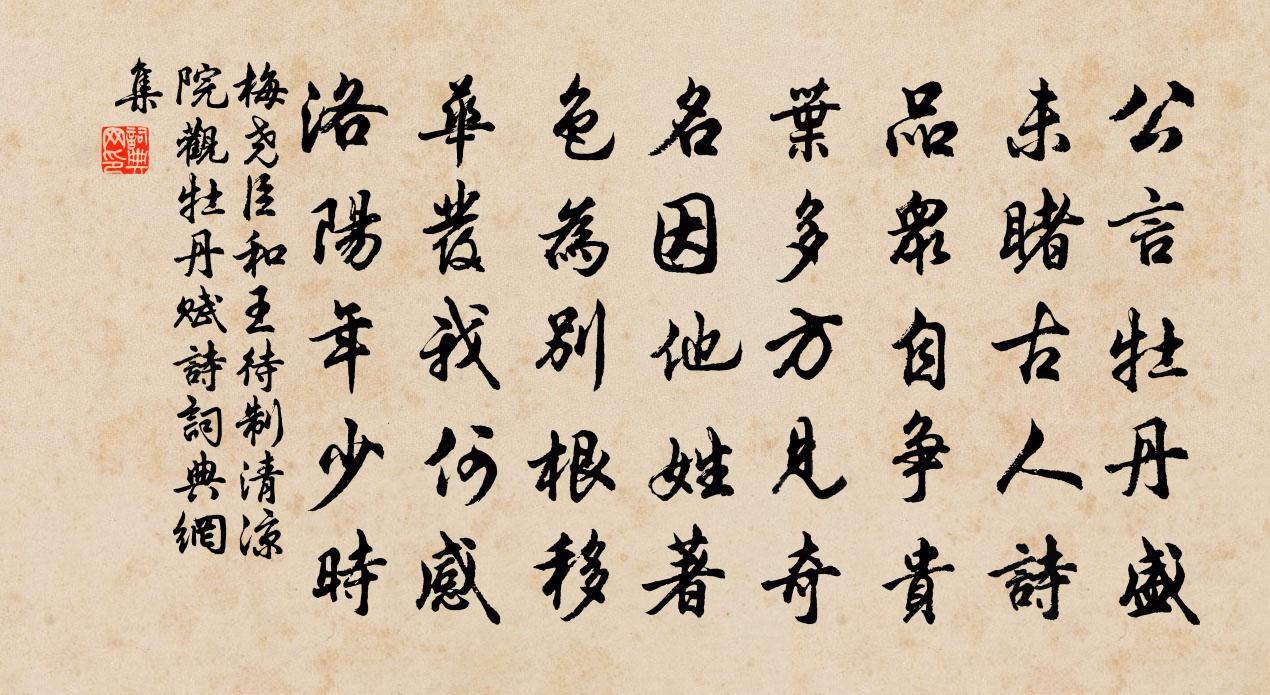 公言牡丹盛
未睹古人詩
品眾自争貴
葉多方見奇
名因他姓著
色為別根移
華發我何感
洛陽年少時
梅尧臣和王待制清凉
院觀牡丹赋詩詞典網
集
詞典
网印